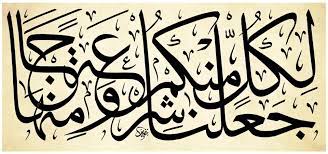 لِكُلٍّ جَعَلْنَا مِنْكُمْ شِرْعَةً وَمِنْهَاجًا